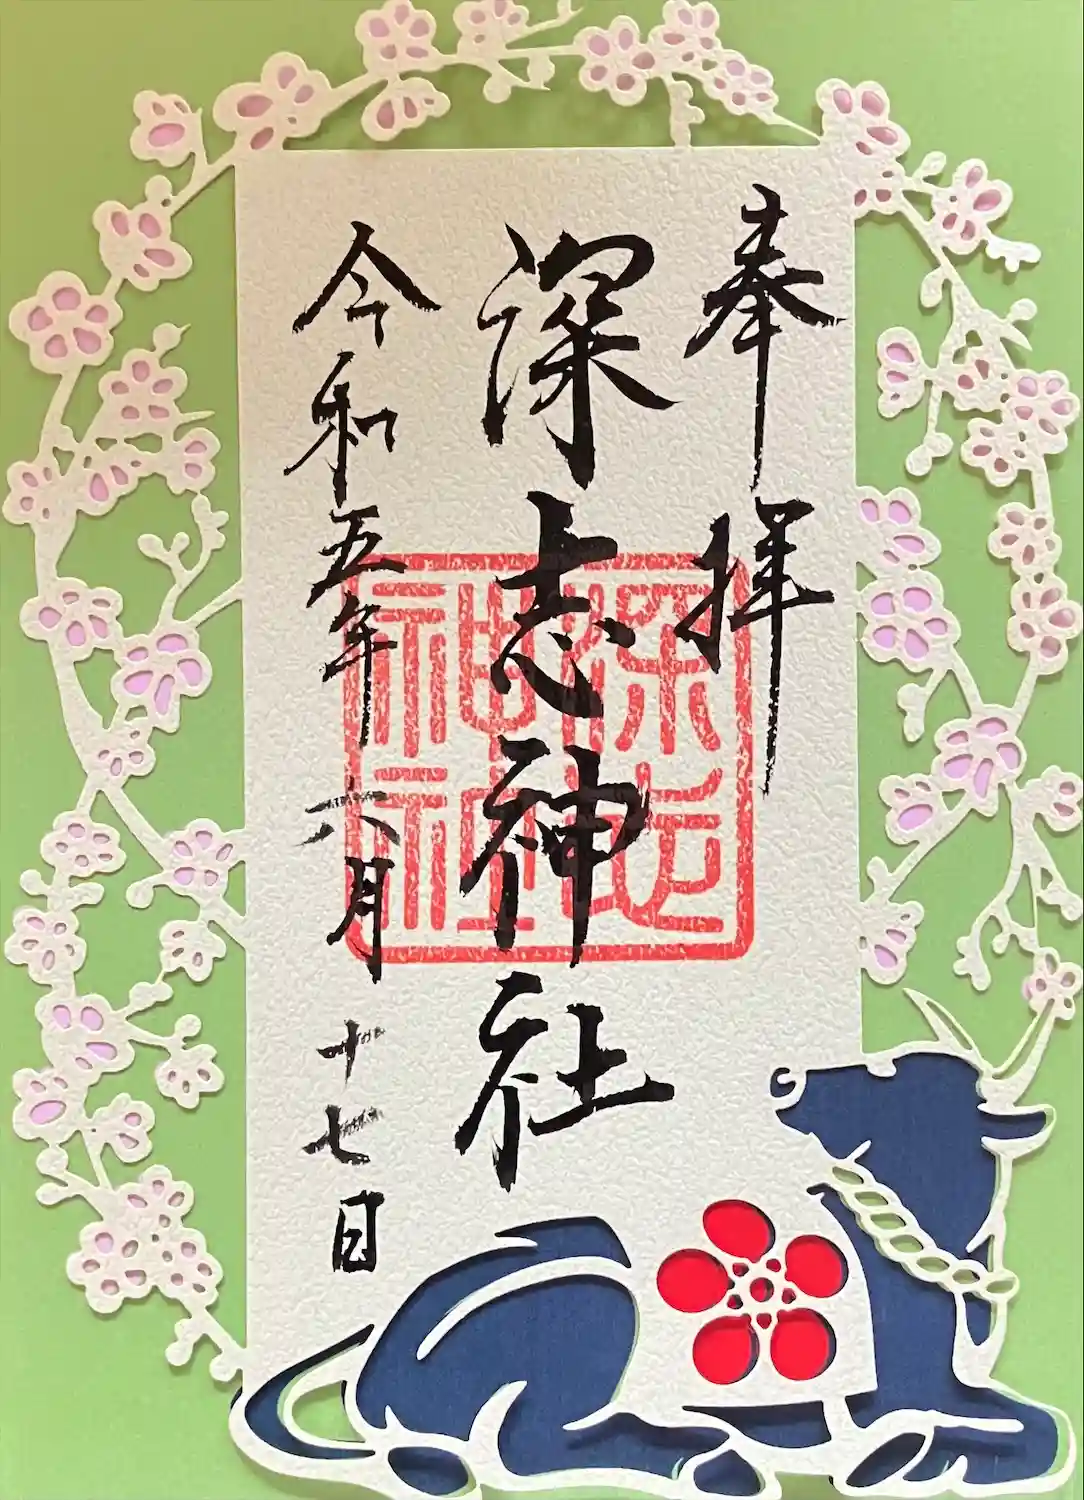 奉拝
深志神社
深志神社
令和五年六月十七日